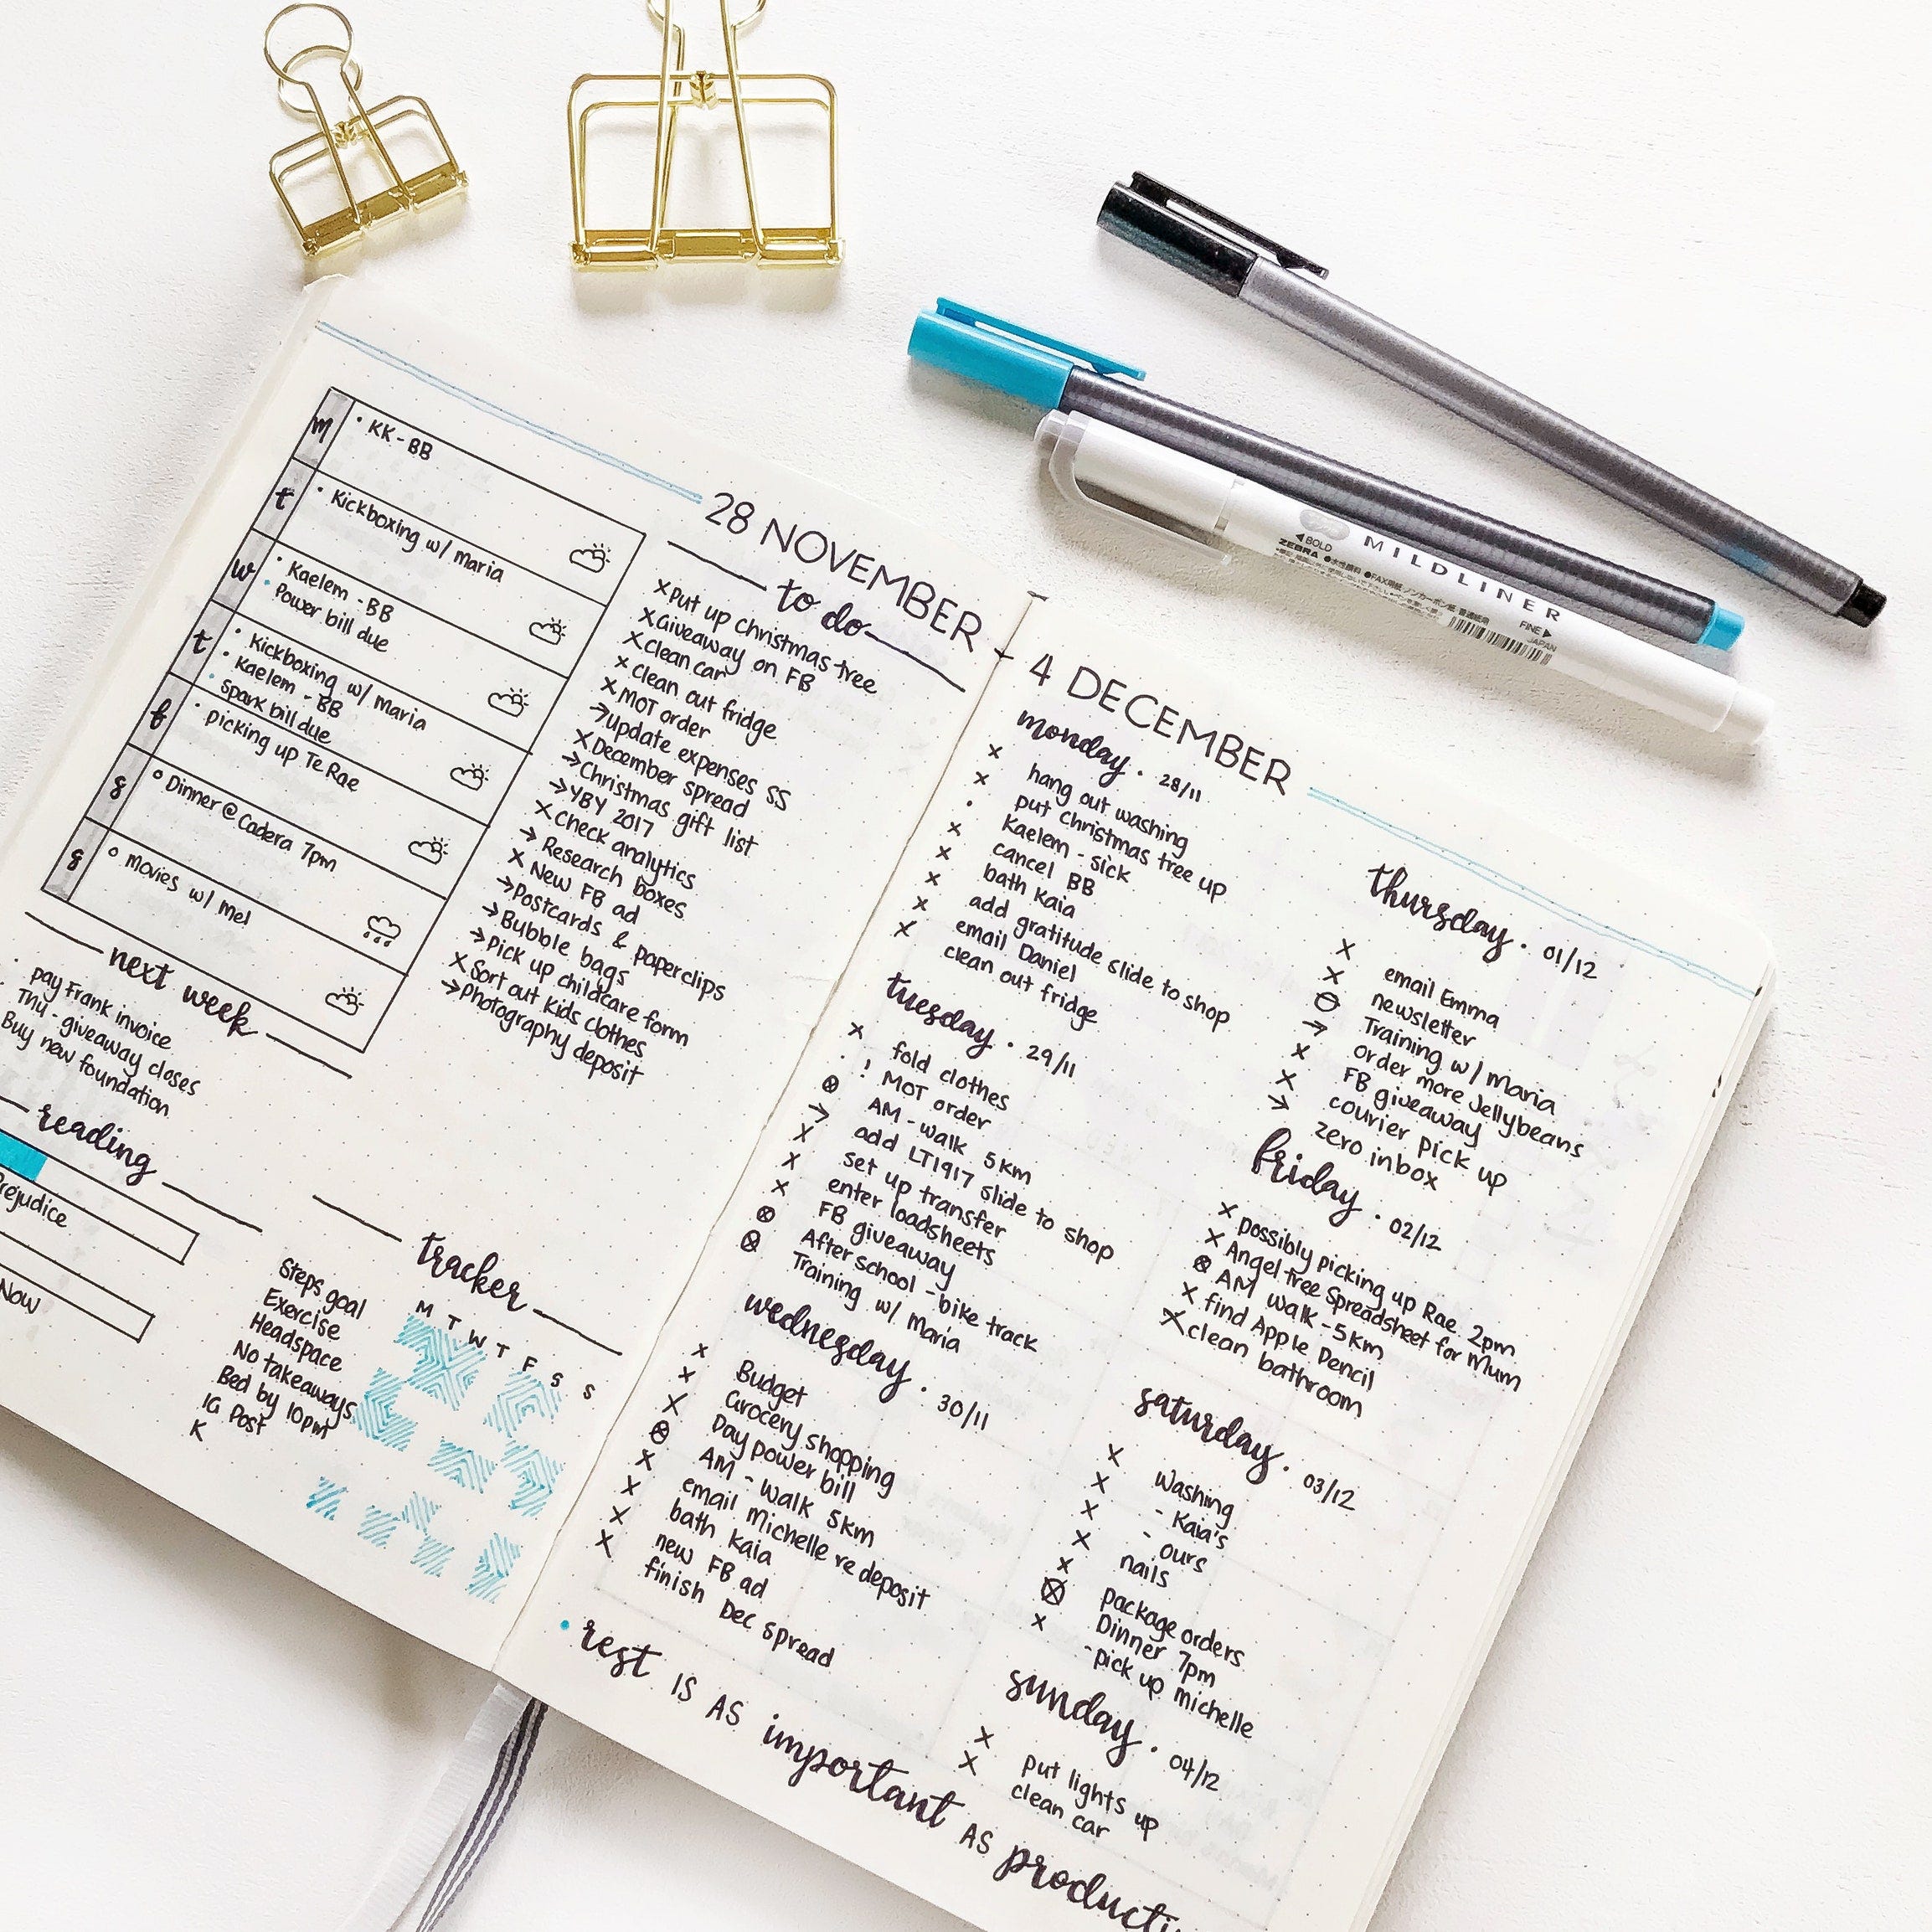 28 NOVEMBER - 4 DECEMBER
m
• KK - BB
t
• Kickboxing w/ Maria
w
• Kaelem - BB
• Power bill due
t
• Kickboxing w/ Maria
• Kaelem - BB
• Spark bill due
f
• picking up Te Rae
s
o Dinner @ Cadera 7pm
s
o movies w/ Mel
next week
• pay Frank invoice
• Thu - giveaway closes
Buy new foundation
reading
Prejudice
Now
to do
x Put up christmas tree
x Giveaway on FB
x Clean car
x clean out fridge
x MOT order
→ update expenses SS
x December spread
→ Christmas gift list
→ YBY 2017
x Check analytics
→ Research boxes
x New FB ad
→ Postcards & paperclips
→ Bubble bags
→ Pick up childcare form
x Sort out kids clothes
→ Photography deposit
tracker
M T W T F S S
Steps goal
Exercise
Headspace
No takeaways
Bed by 10pm
IG Post
K
monday • 28/11
x hang out washing
x put christmas tree up
• Kaelem - sick
x cancel BB
x bath Kaia
x add gratitude slide to shop
x email Daniel
x clean out fridge
tuesday • 29/11
x fold clothes
• ! MOT order
⊗ AM - walk 5km
→ add LT1917 slide to shop
x set up transfer
x enter loadsheets
x FB giveaway
⊗ After school - bike track
⊗ Training w/ Maria
wednesday • 30/11
x Budget
x Grocery shopping
x Day power bill
⊗ AM - walk 5km
x email Michelle re deposit
x bath Kaia
x new FB ad
x finish Dec spread
thursday • 01/12
x email Emma
x newsletter
⊖ Training w/ Maria
→ order more jellybeans
x FB giveaway
x courier pick up
→ zero inbox
friday • 02/12
x possibly picking up Rae 2pm
x Angel tree Spreadsheet for Mum
⊗ AM walk - 5km
x find Apple Pencil
x clean bathroom
saturday • 03/12
x Washing
x - Kaia's
x - ours
x nails
x package orders
⊗ Dinner 7pm
x - pick up michelle
sunday • 04/12
x put lights up
x clean car
• rest IS AS important AS producti
◀BOLD
ZEBRA
MILDLINER
FINE▶
JAPAN